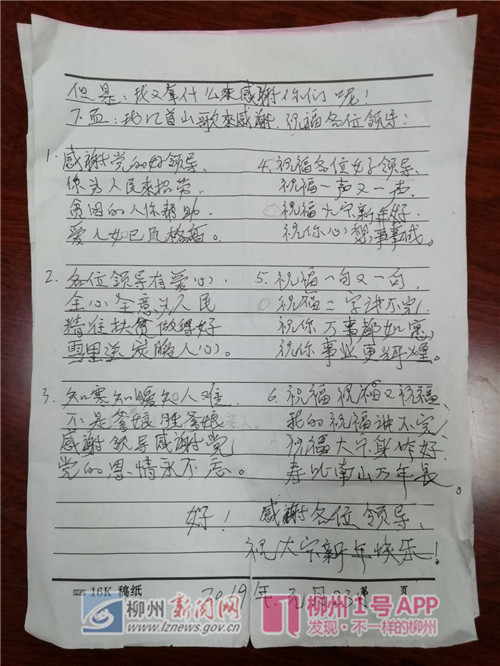 但是：我又拿什么来感谢你们呢！
下面：我以首山歌来感谢、祝福各位领导：
1. 感谢党的好领导、
你为人民来招荣、
贫困的人你帮助、
爱人如已风格高。
2. 各位领导有爱心、
全心全意为人民
精准扶贫做得好
雪里送炭暖人心。
3. 知寒知暖知人难
不是爹娘胜爹娘
感谢领导感谢党
党的恩情永不忘。
4. 祝福各位好领导、
祝福一声又一声、
祝福大家新年好、
祝你心想事事成。
5. 祝福一句又一句、
祝福二字讲不完
祝你万事都如意
祝你事业更辉煌。
6. 祝福祝福又祝福、
我的祝福讲不完
祝福大家身体好、
寿比南山万年长。
好！感谢各位领导、
祝大家新年快乐！
2019年元月23
16K 稿纸 第 页
柳州新闻网
www.lznews.gov.cn
柳州1号APP
发现·不一样的柳州